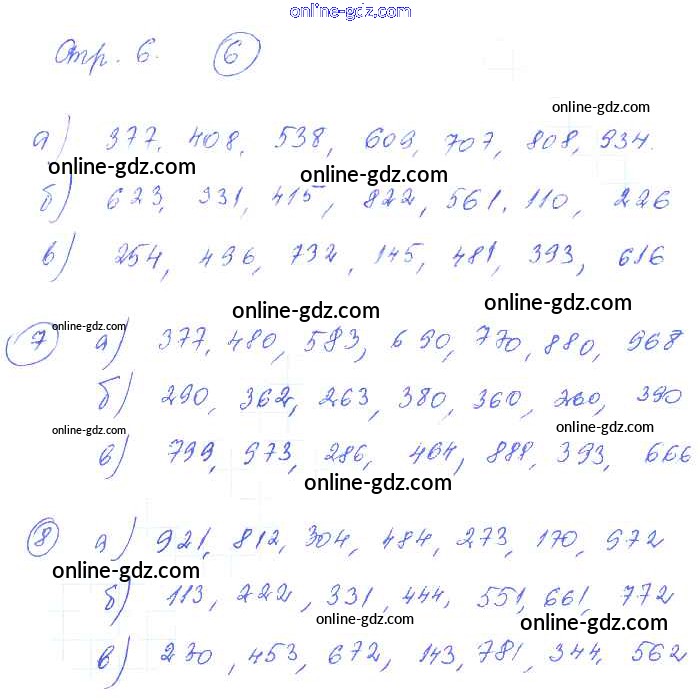 online-gdz.com
Стр. 6. 6
online-gdz.com
а) 377, 408, 538, 609, 707, 808, 934.
online-gdz.com online-gdz.com
б) 623, 931, 415, 822, 561, 110, 226
в) 254, 496, 732, 145, 481, 393, 616
online-gdz.com online-gdz.com
online-gdz.com
7 а) 377, 480, 583, 690, 770, 880, 968
online-gdz.com
б) 290, 362, 263, 380, 360, 260, 390
online-gdz.com online-gdz.com
в) 799, 973, 286, 464, 888, 393, 666
online-gdz.com
8 а) 921, 812, 304, 484, 273, 170, 972
online-gdz.com
б) 113, 222, 331, 444, 551, 661, 772
online-gdz.com online-gdz.com
в) 270, 453, 672, 143, 781, 344, 562